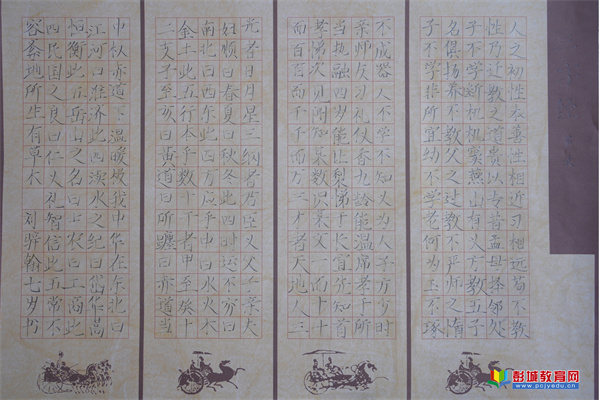 人之初性本善性相近习相远苟不教
性乃迁教之道贵以专昔孟母择邻处
子不学断机杼窦燕山有义方教五子
名俱扬养不教父之过教不严师之惰
子不学非所宜幼不学老何为玉不琢
不成器人不学不知义为人子方少时
亲师友习礼仪香九龄能温席孝于所
当执融四岁能让梨弟于长宜先知首
孝悌次见闻知某数识某文一而十十
而百百而千千而万三才者天地人三
光者日月星三纲者君臣义父子亲夫
妇顺曰春夏曰秋冬此四时运不穷曰
南北曰西东此四方应乎中曰水火木
金土此五行本乎数十干者甲至癸十
二支子至亥曰黄道曰所躔曰赤道当
中权赤道下温暖极我中华在东北曰
江河曰淮济此四渎水之纪曰岱华嵩
恒衡此五岳山之名曰士农曰工商此
四民国之良曰仁义礼智信此五常不
容紊地所生有草木 刘骅翰七岁书
彭城教育网
www.pcjyedu.cn